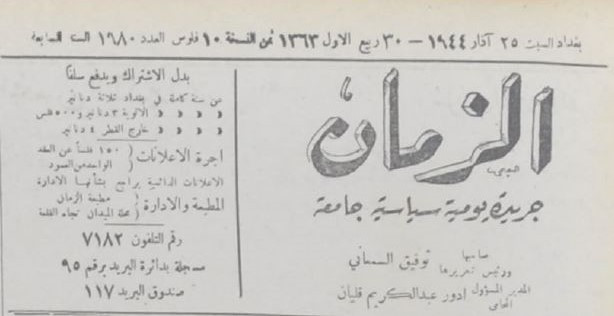 بغداد السبت ٢٥ آذار ١٩٤٤ — ٣٠ ربيع الاول ١٣٦٣ ثمن النسخة ١٠ فلوس العدد ١٩٨٠ السنة السابعة
الزمان
جريدة يومية سياسية جامعة
صاحبها ورئيس تحريرها توفيق السمعاني
المدير المسؤول المحامي ادور عبدالكريم قليان
بدل الاشتراك ويدفع سلفا
عن سنة كاملة في بغداد ثلاثة دنانير
» » » » الالوية ٣ دنانير و٥٠٠ فلس
» » » » خارج القطر ٤ دنانير
اجرة الاعلانات ( ١٥٠ فلساً عن العقد الواحد من العمود
الاعلانات الدائمية يراجع بشأنها الادارة
المطبعة والادارة ( مطبعة الزمان
محلة الميدان تجاه القلعة
رقم التلفون ٧١٨٢
مسجلة بدائرة البريد برقم ٩٥
صندوق البريد ١١٧